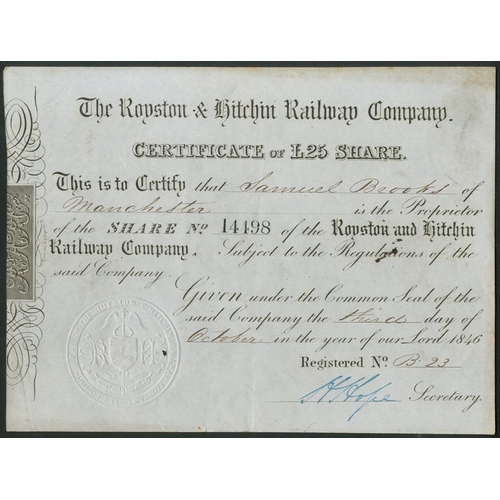 The Royston & Hitchin Railway Company.
CERTIFICATE OF £25 SHARE.
This is to Certify that Samuel Brooks of
Manchester is the Proprietor
of the SHARE No 14498 of the Royston and Hitchin
Railway Company. Subject to the Regulations of the
said Company.
Given under the Common Seal of the
said Company the third day of
October in the year of our Lord 1846
Registered No. B 23
H Hope Secretary.